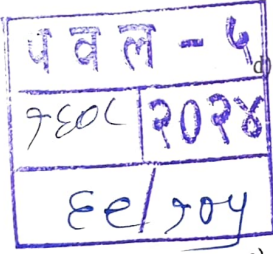 पवल - ५
१६०८ २०२४
६९/१०५